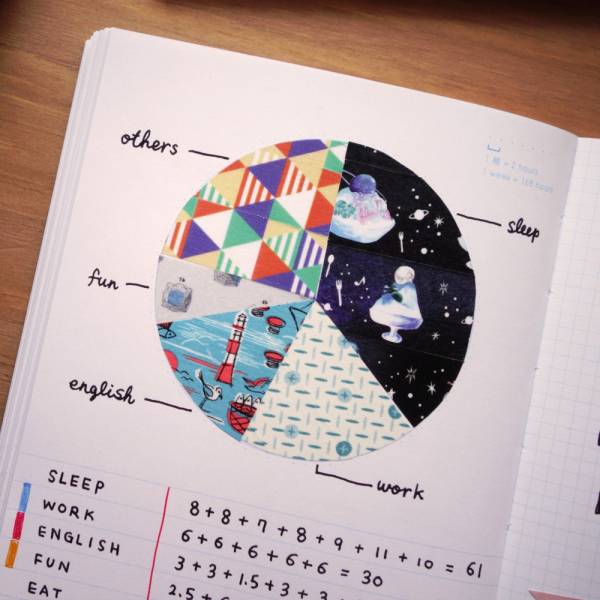 others
sleep
fun
english
work
= 2 hours
1 week = 168 hours
SLEEP 8+8+7+8+9+11+10 = 61
WORK 6+6+6+6+6 = 30
ENGLISH 3+3+1.5+3+3
FUN 2.5
EAT